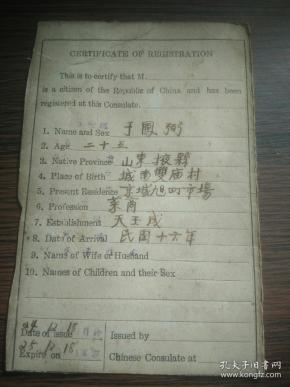 CERTIFICATE OF REGISTRATION
This is to certify that M.
is a citizen of the Republic of China and has been
registered at this Consulate.
1. Name and Sex 于國
2. Age 二十五
3. Native Province 山東掖縣
4. Place of Birth 城南雙廟村
5. Present Residence 京城旭町市場
6. Profession 菜商
7. Establishment 天玉成
8. Date of Arrival 民國十六年
9. Name of Wife or Husband
10. Names of Children and their Sex
Date of issue Issued by
Expire on Chinese Consulate at
孔夫子旧书网